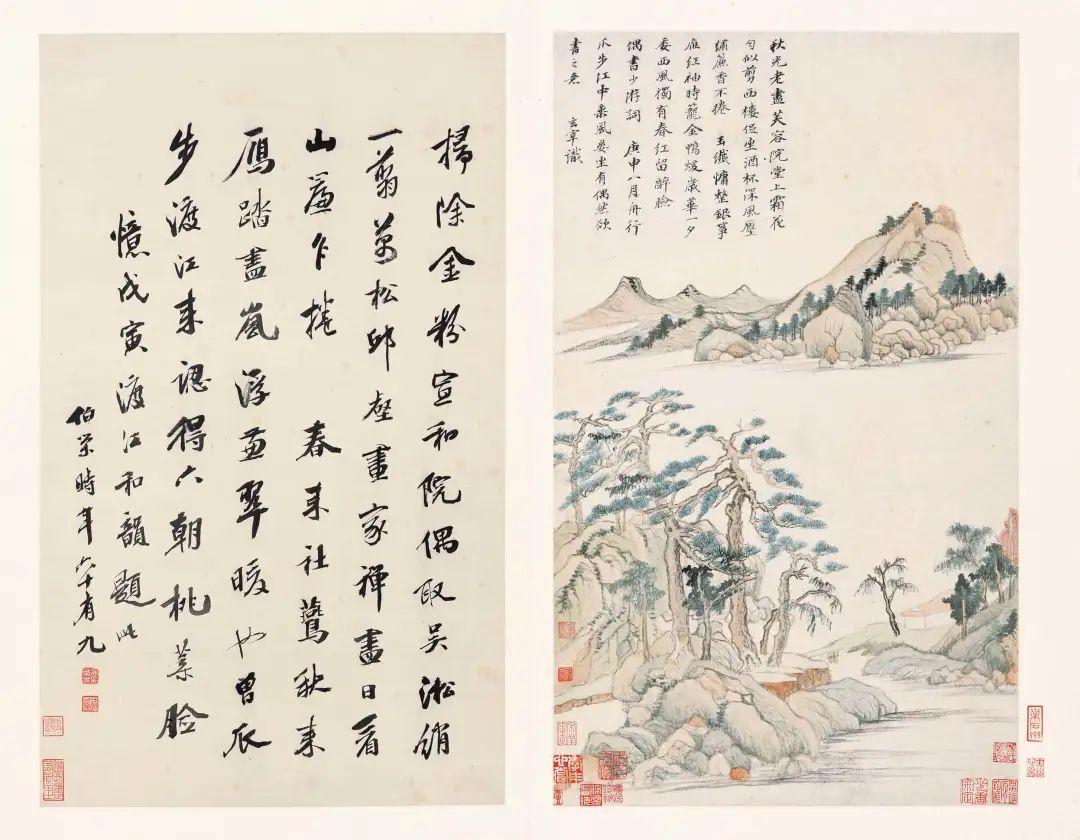 秋光老盡芙容院堂上霜花
勻似剪西樓促坐酒杯深風壓
繡簾香不捲 玉纖慵整銀箏
雁紅袖時籠金鴨煖歲華一夕
委西風獨有春紅留醉臉
偶書少游詞 庚申八月舟行
瓜步江中乘風晏坐有偶然欲
書之意 玄宰識
掃除金粉宣和院偶取吳淞綃
一翦萬松邱壑畫家禪盡日看
山簾乍捲 春來社鷰秋來
鴈踏盡嵐浮兼翠暖也曾瓜
步渡江來認得六朝桃葉臉
憶戊寅渡江和韻題此
伯榮時年六十有九